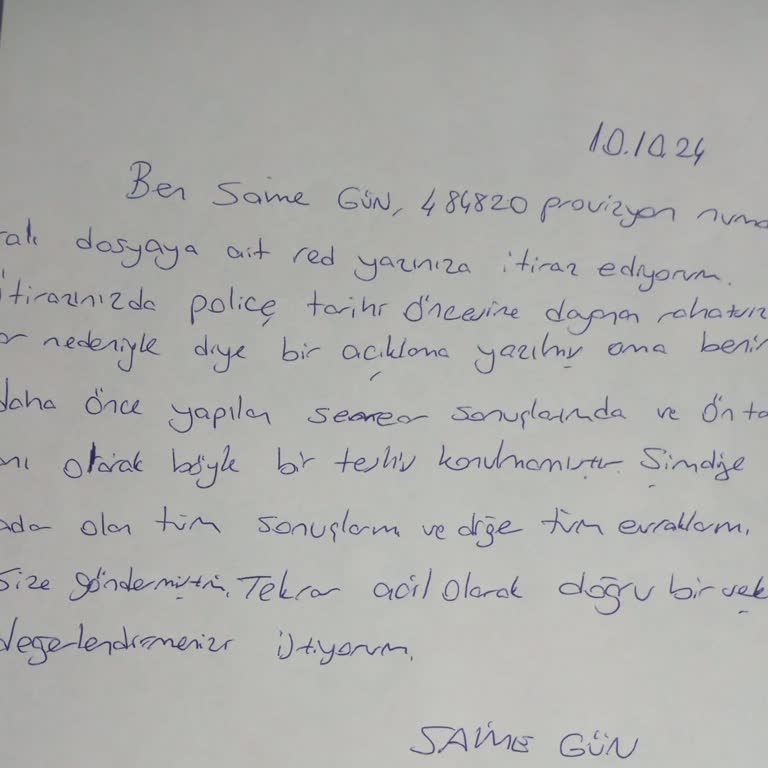 10.10.24
Ben Saime GÜN, 484820 provizyon numa
ralı dosyaya ait red yazınıza itiraz ediyorum.
İtirazınızda poliçe tarihi öncesine dayanan rahatsız
or nedeniyle diye bir açıklama yazılmış ama benim
daha önce yapılan sonuçlarında ve Ön ta
nı olarak böyle bir teşhis konulmamıştır. Şimdiye
ada olan tüm sonuçlarım ve diğe tüm evraklarım,
Size göndermiştim. Tekrar acil olarak doğru bir şek
değerlendirmenizi istiyorum.
SAİME GÜN